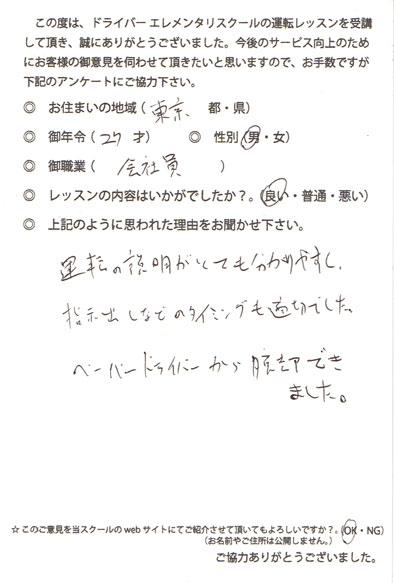 この度は、ドライバー エレメンタリスクールの運転レッスンを受講
して頂き、誠にありがとうございました。今後のサービス向上のため
にお客様の御意見を伺わせて頂きたいと思いますので、お手数ですが
下記のアンケートにご協力下さい。
◎ お住まいの地域(東京 都・県)
◎ 御年令(27 才) ◎ 性別(男・女)
◎ 御職業(会社員)
◎ レッスンの内容はいかがでしたか?。(良い・普通・悪い)
◎ 上記のように思われた理由をお聞かせ下さい。
運転の説明がとても分かりやすく、
指示出しなどのタイミングも適切でした。
ペーパードライバーから脱却でき
ました。
☆このご意見を当スクールのwebサイトにてご紹介させて頂いてもよろしいですか?。(OK・NG)
(お名前やご住所は公開しません。)
ご協力ありがとうございました。